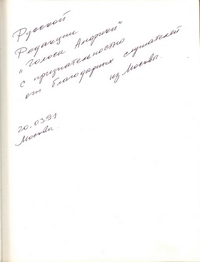 Русской
Редакции
"Голоса Андорры"
с признательностью
от благодарных слушателей
из Москвы.
20.03.81
Москва.